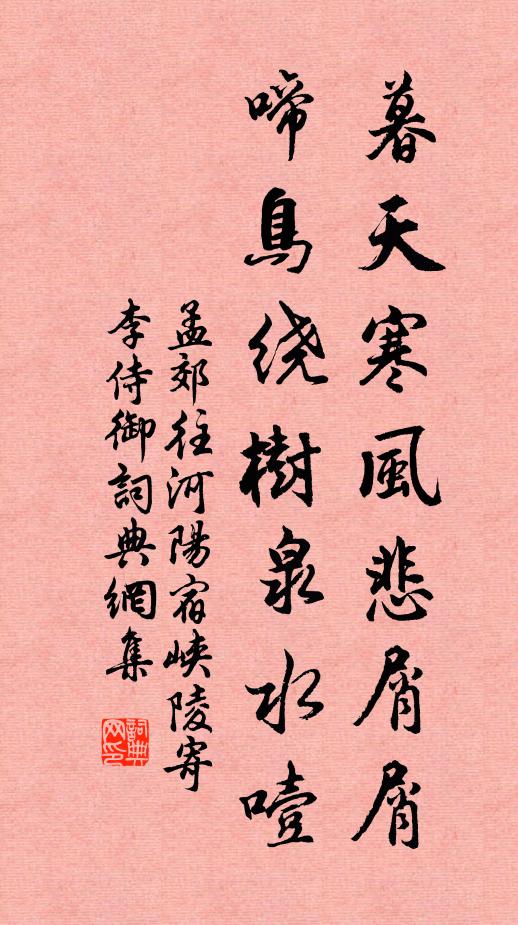 暮天寒風悲屑屑
啼鳥繞樹泉水噎
孟郊往河陽宿峽陵寄
李侍御詞典網集
詞典
网印